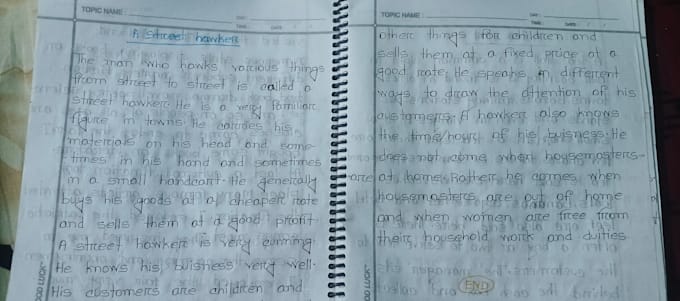 TOPIC NAME:
DAY:
TIME:
DATE: / /
A street hawker
The man who hawks various things
from street to street is called a
street hawker. He is a very familiar
figure in towns. He carries his
materials on his head and some-
times in his hand and sometimes
in a small handcart. He generally
buys his goods at a cheaper rate
and sells them at a good profit.
A street hawker is very cunning.
He knows his buisness very well.
His customers are children and
GOOD LUCK
TOPIC NAME:
DAY:
TIME:
DATE: / /
other things for children and
sells them at a fixed price at a
good rate. He speaks in different
ways to draw the attention of his
customers. A hawker also knows
the time/hours of his buisness. He
does not come when housemasters
are at home. Rather he comes when
housemasters are out of home
and when women are free from
their household work and duties
END
GOOD LUCK